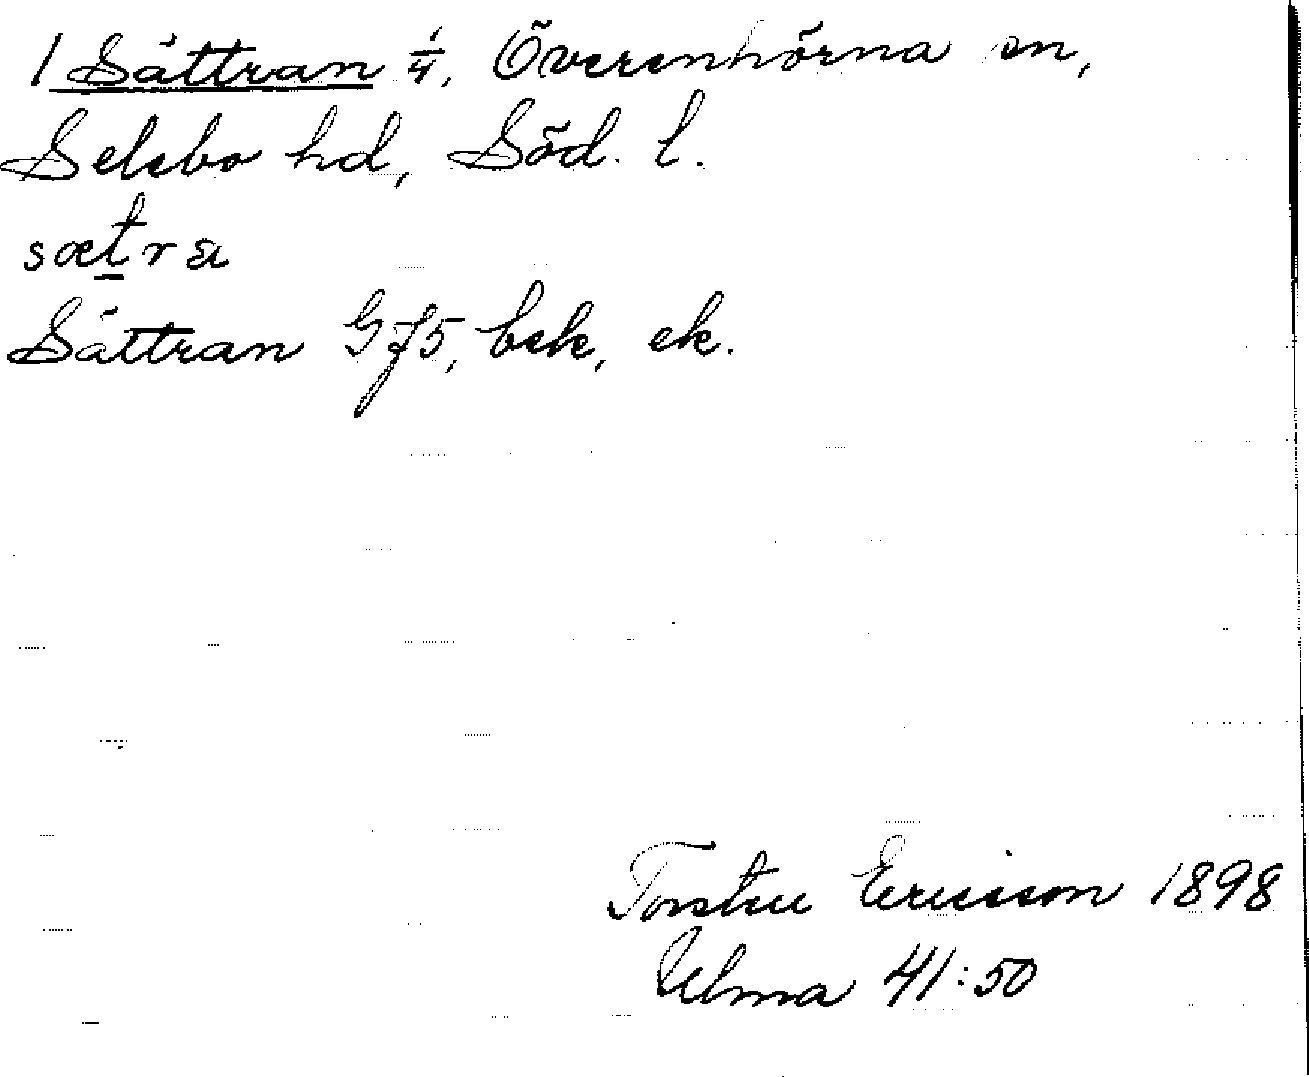 1 Sättran 1/4, Överenhörna sn,
Selebo hd, Söd. l.
sætra
Sättran Gf5, bek, ek.
Torsten Ericsson 1898
Ulma 41:50